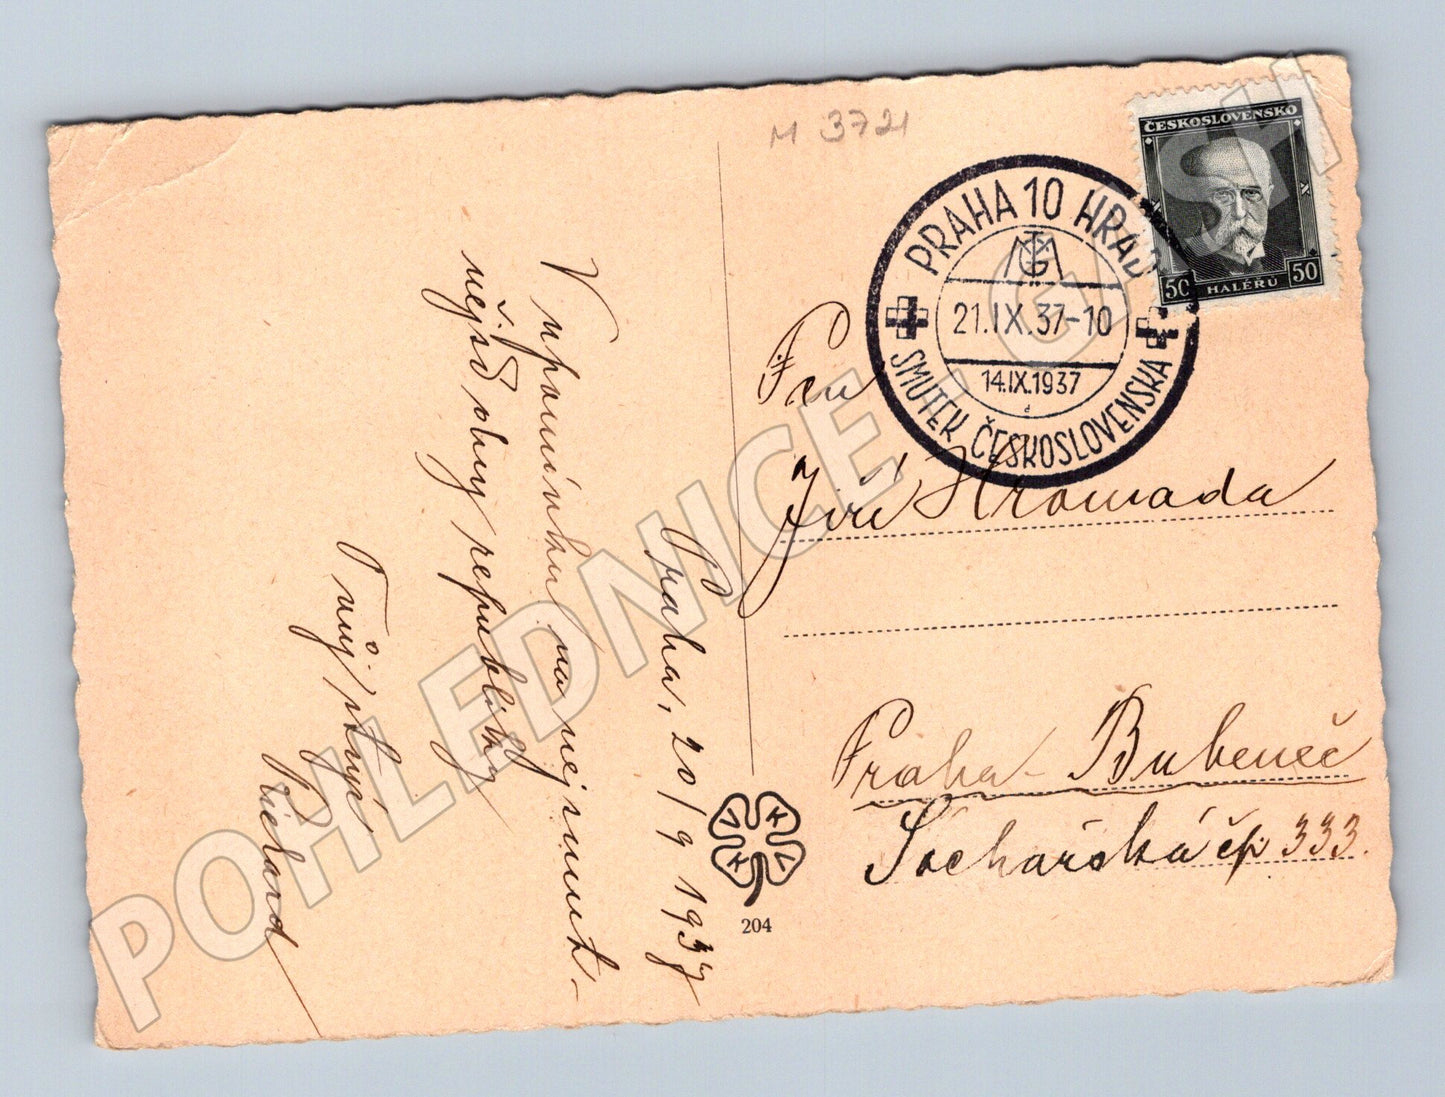 M 3721
ČESKOSLOVENSKO
50 HALÉRŮ 50
PRAHA 10 HRAD
TGM
21.IX.37-10
14.IX.1937
d
SMUTEK ČESKOSLOVENSKA
Praha, 20/9 1937
V upomínku na nejsmut-
nejší dny republiky
Tvůj strýc,
Jiří Hromada
Praha - Bubeneč
Sochařská čp 333.
204
POHLEDNICE - GASH